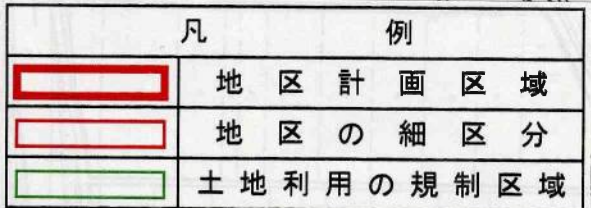 凡例
地区計画区域
地区の細区分
土地利用の規制区域